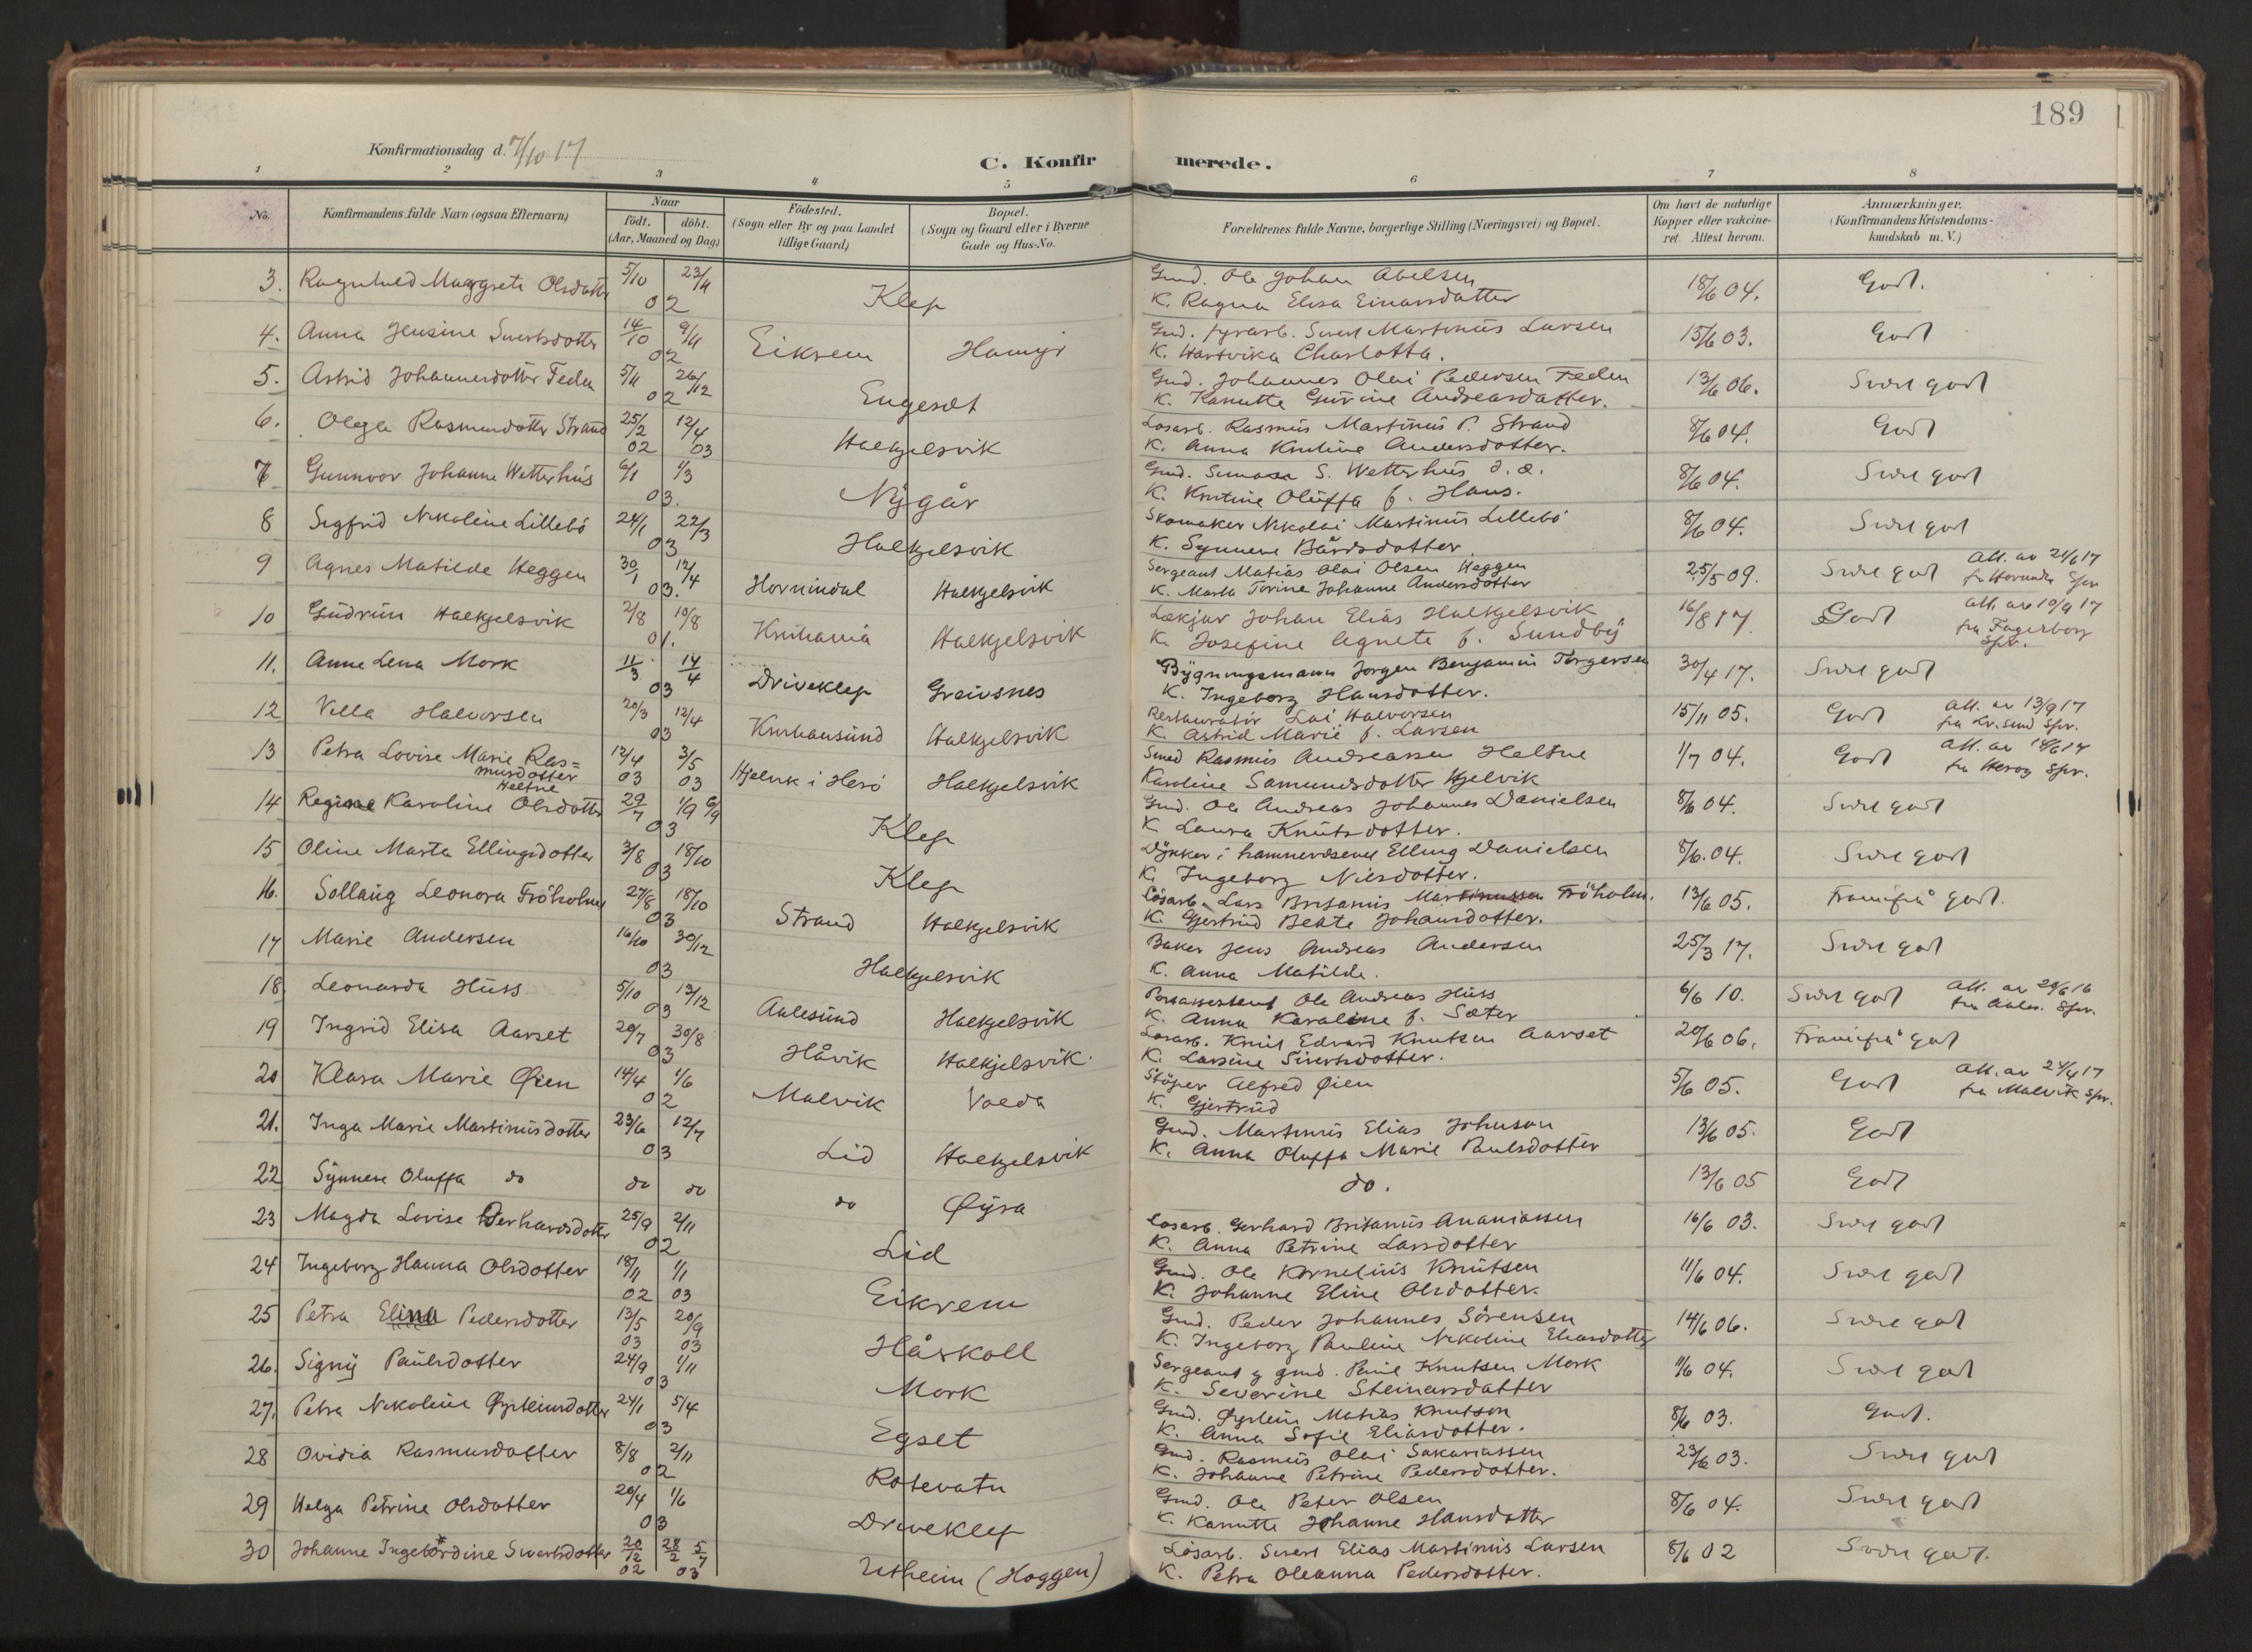 189
Konfirmationsdag d. 7/10 17
C. Konfirmerede.
1 2 3 4 5 6 7 8
No. Konfirmandens fulde Navn (ogsaa Efternavn) Naar födt. döbt. (Aar, Maaned og Dag) Födested. (Sogn eller By og paa Landet tillige Gaard) Bopæl. (Sogn og Gaard eller i Byerne Gade og Hus-No. Forældrenes fulde Navne, borgerlige Stilling (Næringsvei) og Bopæl. Om havt de naturlige Kopper eller vakcineret. Attest herom. Anmærkninger. (Konfirmandens Kristendomskundskab m.V.)
3. Ragnhild Maggrete Olsdatter 5/10 23/11 02 Klep Gmd. Ole Johan Abelsen 18/6 04. Godt.
K. Ragna Elisa Einarsdatter
4. Anna Jensine Sivertsdotter 14/10 9/11 02 Eikrem Hamyr Gmd. fyrarb. Sivert Martinus Larsen 15/6 03. Godt
K. Hartvika Charlotta.
5. Astrid Johannesdotter Feden 5/11 26/12 02 Engeset Gmd. Johannes Olai Pedersen Feden 13/6 06. Svært godt
K. Kanutte Gurine Andreasdatter.
6. Olga Rasmusdotter Strand 25/2 02 12/4 03 Halkjelsvik Losarb. Rasmus Martinus P. Strand 8/6 04. Godt
K. Anna Kristine Andersdotter.
7 Gunnvor Johanne Wetterhus 6/1 1/3 03. Nygår Gmd. S. Wetterhus d. æ. 8/6 04. Svært godt
K. Kristine Oluffa f. Haus.
8 Sigfrid Nikoline Lillebö 24/1 22/3 03 Halkjelsvik Skomaker Nikolai Martinus Lillebö 8/6 04. Svært godt
K. Synneve Bårdsdotter.
9 Agnes Matilde Heggen 30/1 12/4 03. Hornindal Halkjelsvik Sergeant Matias Olai Olsen Heggen 25/5 09. Svært godt Att. av 21/6 17
K. Marta Torine Johanne Andersdotter
10 Gudrun Halkjelsvik 2/8 10/8 01. Kristiania Halkjelsvik Lækjar Johan Elias Halkjelsvik 16/8 17. Godt att. av 10/9 17 fra Fagerborg Spr.
K. Josefine Agnete f. Sundby
11. Anne Lena Mork 11/3 14/4 03 Driveklep Greivsnes Bygningsmann Jorgen Benjamin Torgersen 30/4 17. Svært godt
K. Ingeborg Hansdotter.
12 Vella Halvorsen 20/3 12/4 03 Kristiansund Halkjelsvik Restauratör Lai Halvorsen 15/11 05. Godt att. av 13/9 17 fra Kr.sund Spr.
K. Astrid Marie f. Larsen
13 Petra Lovise Marie Rasmusdotter Heltne 12/4 03 3/5 03 Hjelvik i Herö Halkjelsvik Smed Rasmus Andreassen Heltne 1/7 04. Godt att. av 14/6 17 fra Heröy Spr.
Karoline Samundsdotter Hjelvik
14 Regine Karoline Olsdotter 29/7 1/9 6/9 03 Klep Gmd. Ole Andreas Johannes Danielsen 8/6 04. Svært godt
K Laura Knutsdotter.
15 Oline Marta Ellingsdotter 3/8 18/10 03 Klep Dykker i hamnevesenet Elling Danielsen 8/6. 04. Svært godt
K. Ingeborg Nilsdotter.
16. Sollaug Leonora Fröholm 27/8 18/10 03 Strand Halkjelsvik Lösarb. Lars Britanus Martinussen Fröholm. 13/6 05. Framifrå godt.
K. Gjertrud Beate Johansdotter.
17 Marie Andersen 16/10 30/12 03 Halkjelsvik Baker Jens Andreas Andersen 25/3 17. Svært godt
K. Anna Matilde.
18. Leonarda Huss 5/10 13/12 03 Aalesund Halkjelsvik Postassistent Ole Andreas Huss 6/6 10. Svært godt Att. av 29/6 16 fra Aales. Spr.
K. Anna Karoline f. Sæter
19 Ingrid Elisa Aarset 20/7 30/8 03 Håvik Halkjelsvik. Losarb. Knut Edvard Knutsen Aarset 20/6 06. Framifrå godt
K. Larsine Sivertsdotter.
20 Klara Marie Øien 14/4 1/6 02 Malvik Volda Stöper Alfred Øien 5/6 05. Godt Att. av 24/4 17 fra Malvik Spr.
K. Gjertrud
21. Inga Marie Martinusdotter 23/6 12/7 03 Lid Halkjelsvik Gmd. Martinus Elias Johnson 13/6 05. Godt
K. Anna Oluffa Marie Paulsdotter
22 Synneve Oluffa do do do do Øyra do. 13/6 05 Godt
23 Magda Lovise Gerhardsdotter 25/9 2/11 02 Lid Losarb. Gerhard Britanus Ananiassen 16/6 03. Svært godt
K. Anna Petrine Larsdotter
24 Ingeborg Hanna Olsdotter 18/11 02 1/1 03 Eikrem Gmd. Ole Kornelius Knutsen 11/6 04. Svært godt
K. Johanne Eline Olsdotter.
25 Petra Elina Pedersdotter 13/5 03 20/9 03 Håskoll Gmd. Peder Johannes Sörensen 14/6 06. Svært godt
K. Ingeborg Pauline Nikoline Eliasdotter
26. Signy Paulsdotter 24/9 1/11 03 Mork Sergeant g gmd. Paul Knutsen Mork 11/6 04. Svært godt
K. Severine Steinarsdatter
27. Petra Nikoline Øysteinsdotter 24/1 5/4 03 Egset Gmd. Øystein Matias Knutson 8/6 03. Godt.
K. Anna Sofie Eliasdotter.
28 Ovidia Rasmusdotter 8/8 2/11 02 Rotevatn Gmd. Rasmus Olai Sakariassen 23/6 03. Svært godt
K. Johanne Petrine Pedersdotter.
29 Helga Petrine Olsdotter 20/4 1/6 03 Driveklep Gmd. Ole Peter Olsen 8/6 04. Svært godt
K. Kanutte Johanne Hansdotter
30 Johanne Ingebordine Sivertsdotter 20/12 02 28/2 5/7 03 Utheim (Hoggen) Lösarb. Sivert Elias Martinus Larsen 8/6 02 Svært godt.
K. Petra Oleanna Pedersdotter.